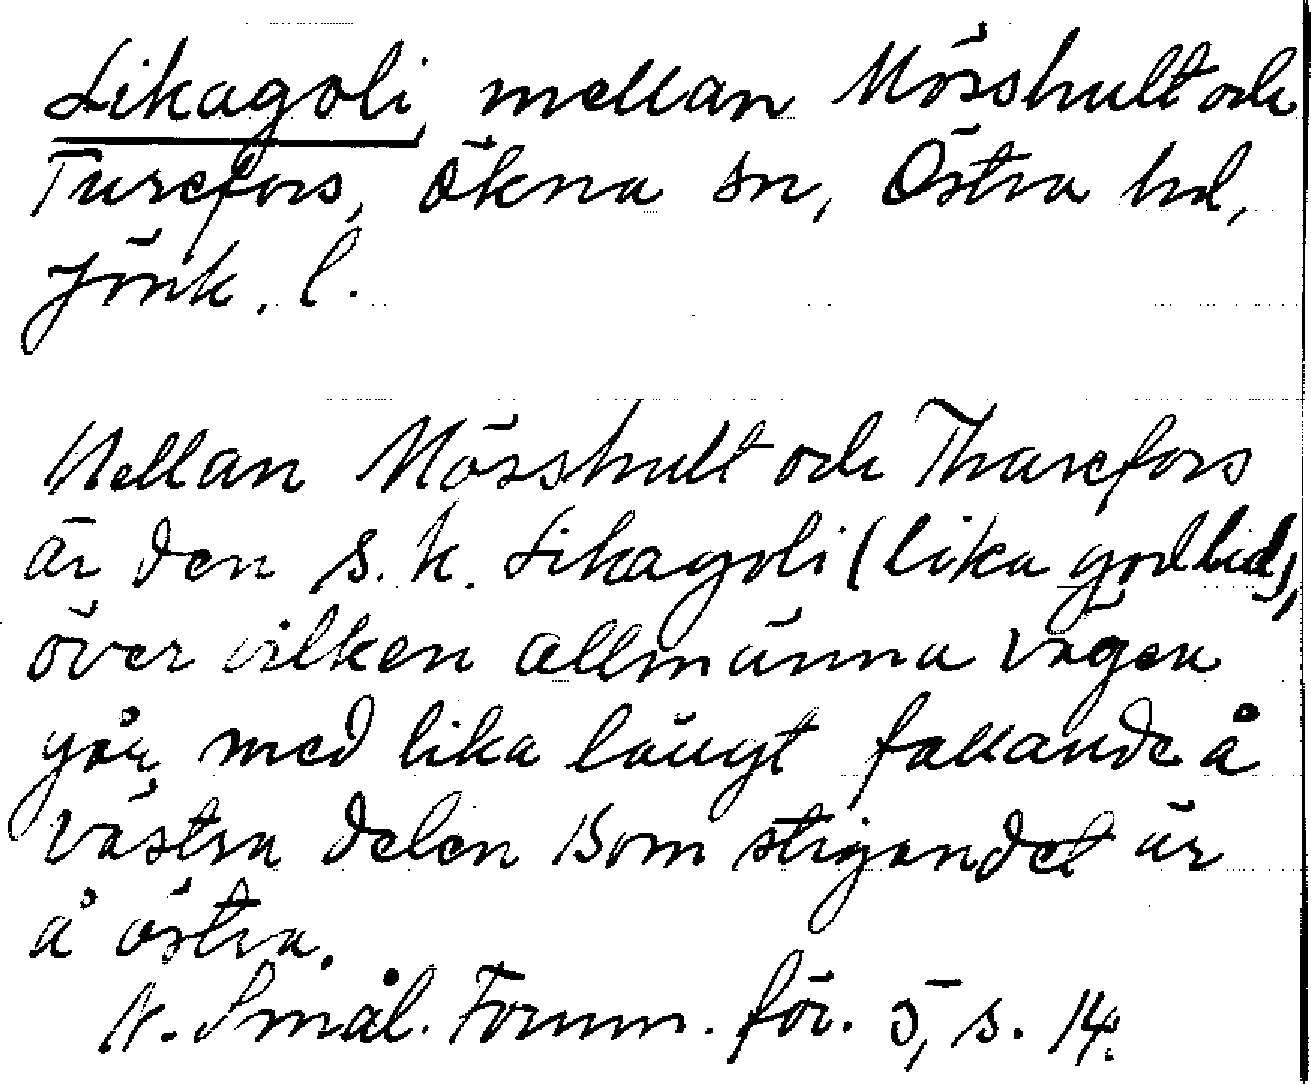 Likagoli, mellan Mösshult och
Turefors, Ökna sn, Östra hd,
Jönk. l.
Mellan Mösshult och Tharefors
är den s.k. Likagoli (lika god lid),
över vilken allmänna vägen
går, med lika långt fallande å
västra delen som stigandet är
å östra.
N. Smål. Fornm. för. 5, s. 14.